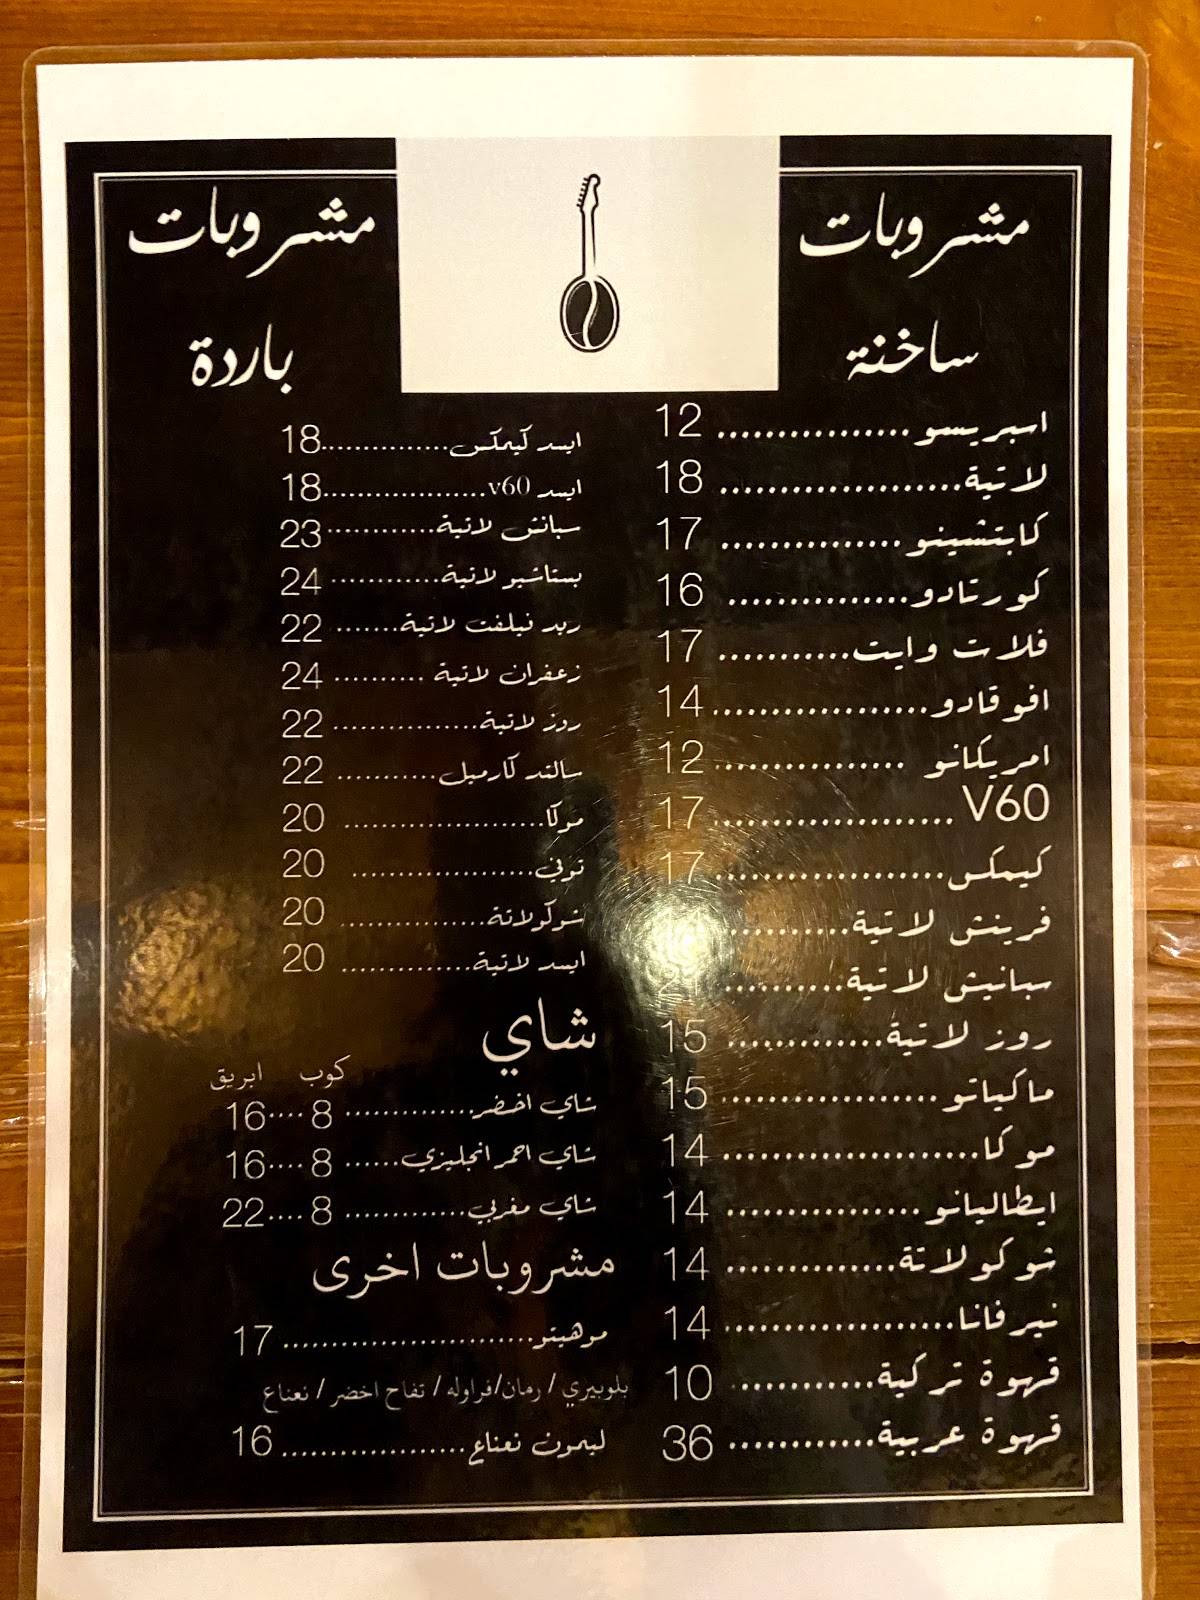 مشروبات
ساخنة
اسبريسو................12
لاتية....................18
كابتشينو...............17
كورتادو...............16
فلات وايت...........17
افوقادو..................14
امريكانو ................12
V60 ....................17
كيمكس...................17
فرينش لاتية..........
سبانيش لاتية..........
روز لاتية.............15
ماكياتو..................15
موكا.....................14
ايطاليانو ................14
شوكولاتة..............14
نيرفانا...................14
قهوة تركية............10
قهوة عربية............36
مشروبات
باردة
ايسد كيمكس...............18
ايسد v60...................18
سبانش لاتية............23
بستاشيو لاتية............24
ريد فيلفت لاتية.......22
زعفران لاتية ..........24
روز لاتية...............22
سالتد كارميل...........22
موكا.....................20
توفي...................20
شوكولاتة...............20
ايسد لاتية..............20
شاي
كوب ابريق
شاي اخضر..............8....16
شاي احمر انجليزي......8....16
شاي مغربي.............8....22
مشروبات اخرى
موهيتو........................17
بلوبيري / رمان/فراوله / تفاح اخضر / نعناع
ليمون نعناع..................16